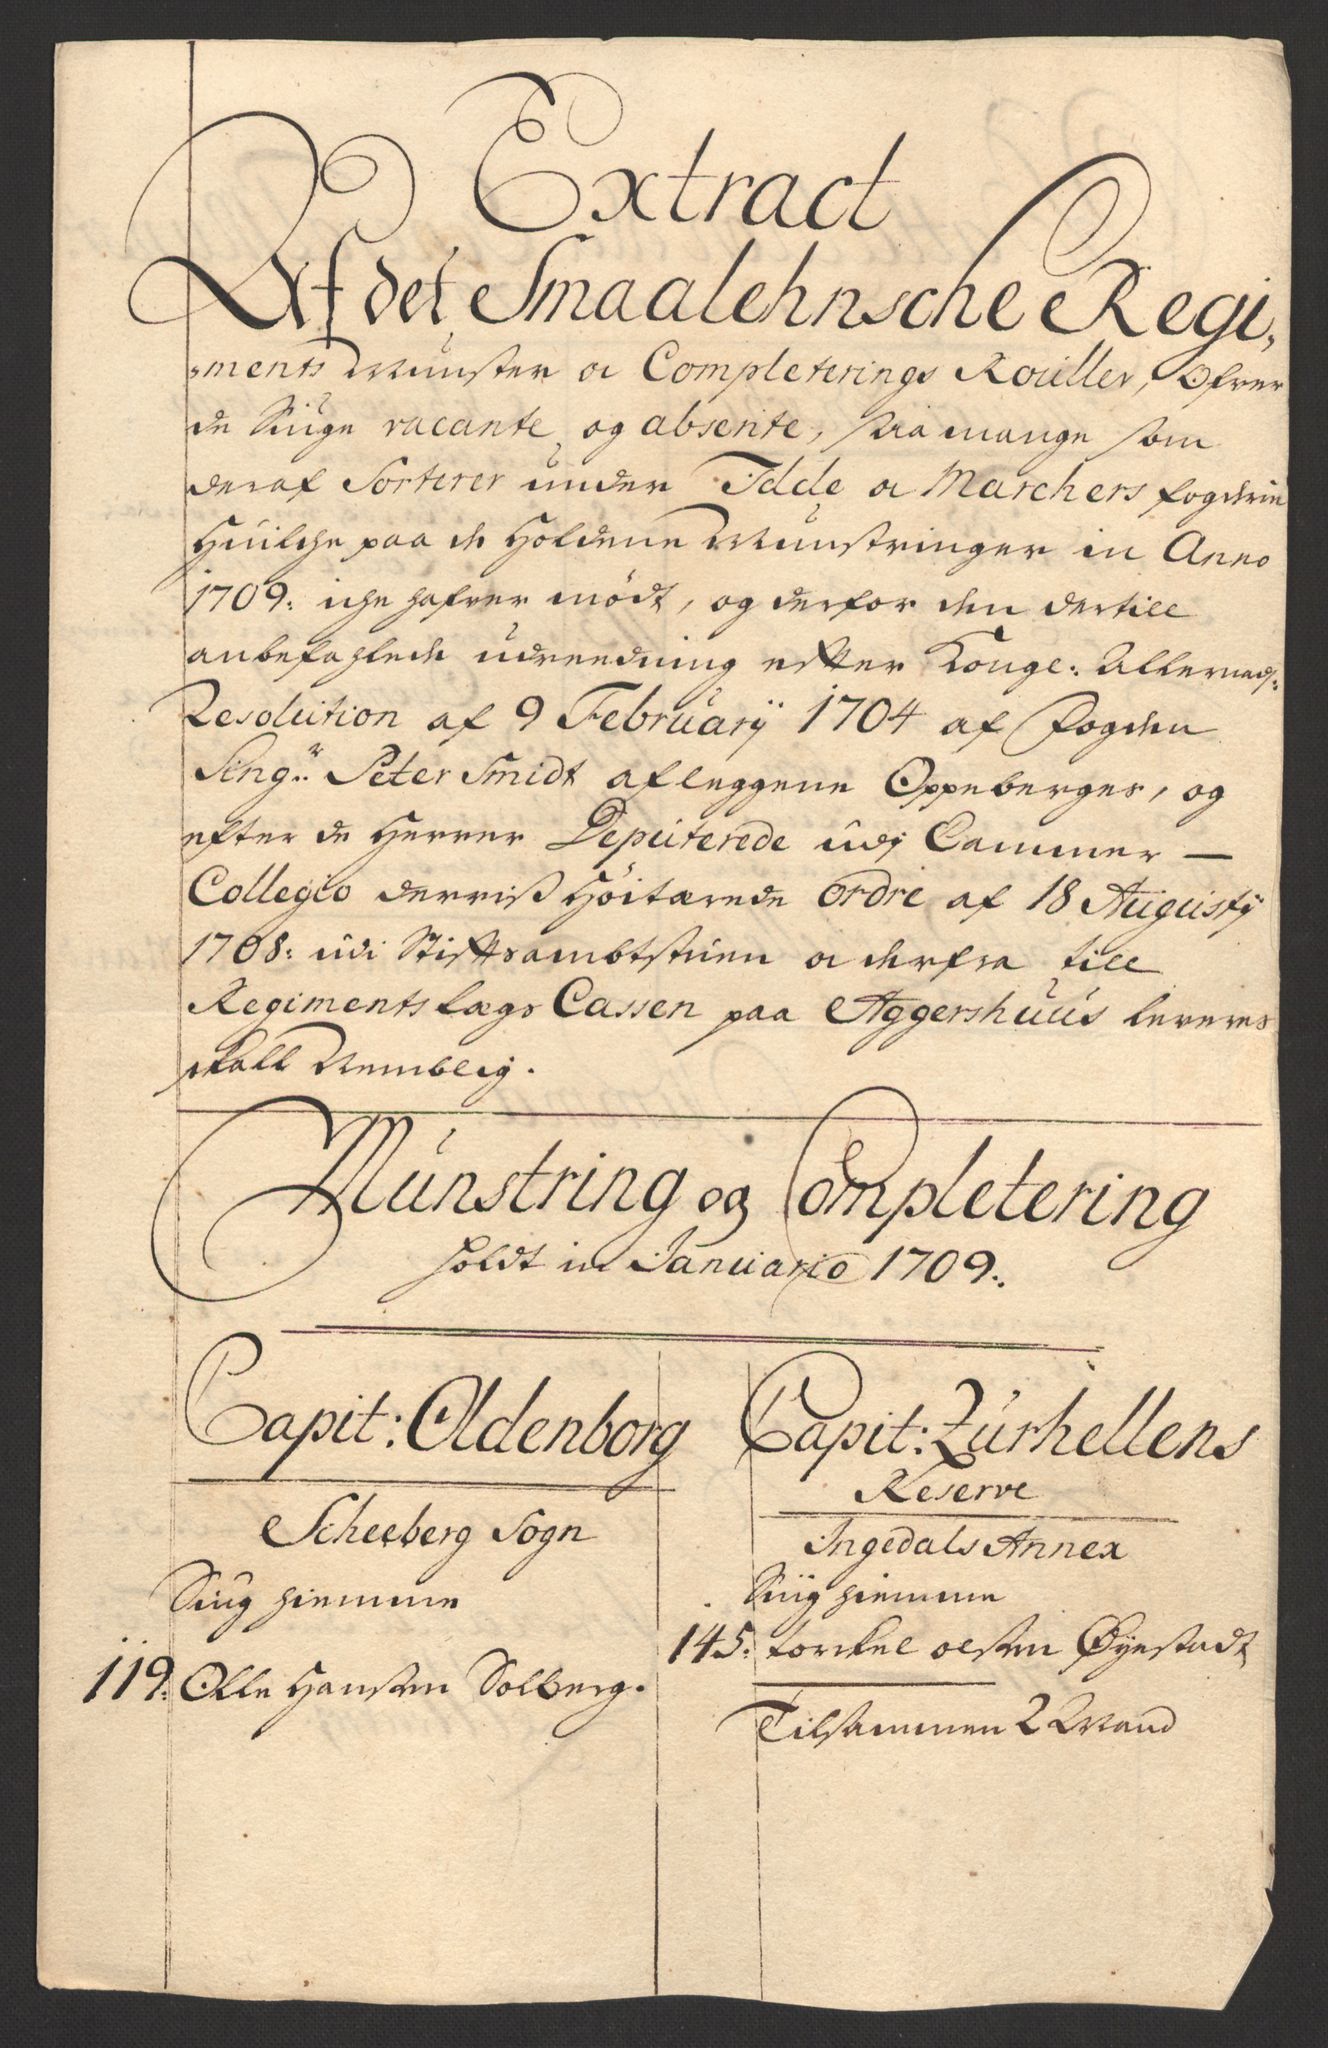 Extract
Af det Smaalehnsche Regi,
ments Munster og Completerings Roüller, Ofver
de Siuge vacante og absente, saa mange som
deraf Sorterer under Idde og Marchers fogderie
Huilche paa de Holdene Munstringer in Anno
1709: iche hafver mödt, og derfor den dertill
anbefahlede udreedning efter Konge: Allernad:
Resolution af 9 Februarij 1704 af Fogden
Sing.r Peter Smidt afleggene Oppeberges, og
efter de Herrer Deputerede udj Cammer —
Collegio derris Höitærede ordre af 18 Augustij
1708: udi Stiftsambtstuen og derfra till
Regiments lægs Cassen paa Aggershuus leveres
skall Nemblig.
Munstring og Completering
holdt in Januario 1709.
Capit: Oldenborg
Scheeberg Sogn
Siug hiemme
119: Olle Hansen Solberg.
Capit: Zurhellens
Reserve
Ingedals Annex
Siug hiemme
145: torckel olsen Øyestadt
Tilsammen 2 Mand